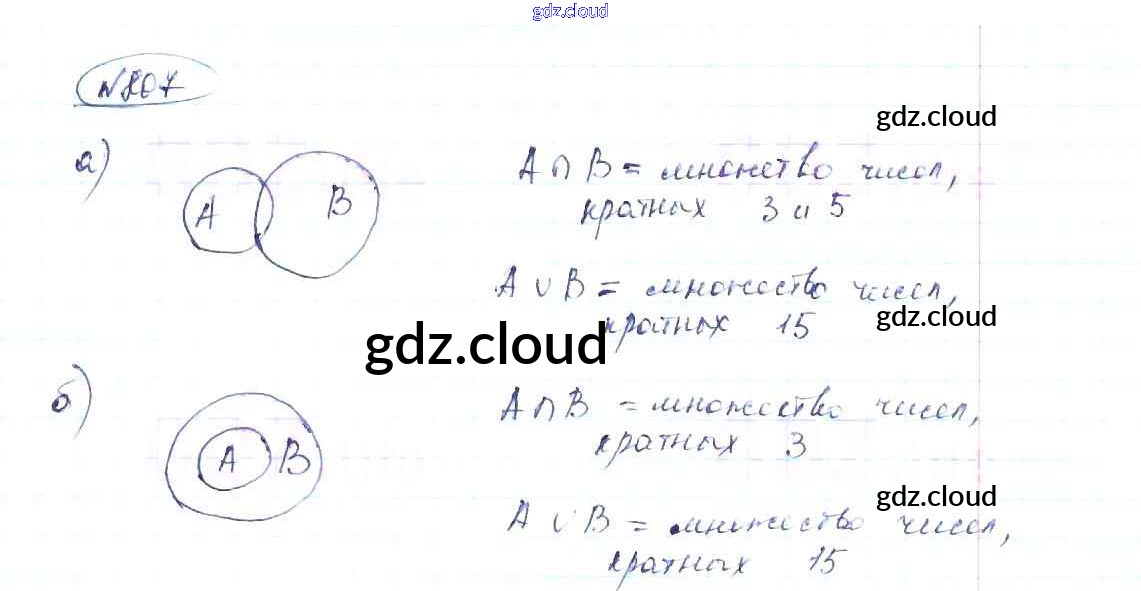 gdz.cloud
№ 807
gdz.cloud
а)
A ∩ B = множство чисел,
кратных 3 и 5
A B
A ∪ B = множество чисел,
gdz.cloud
кратных 15
gdz.cloud
б)
A ∩ B = множество чисел,
кратных 3
A B
gdz.cloud
A ∪ B = множество чисел,
кратных 15